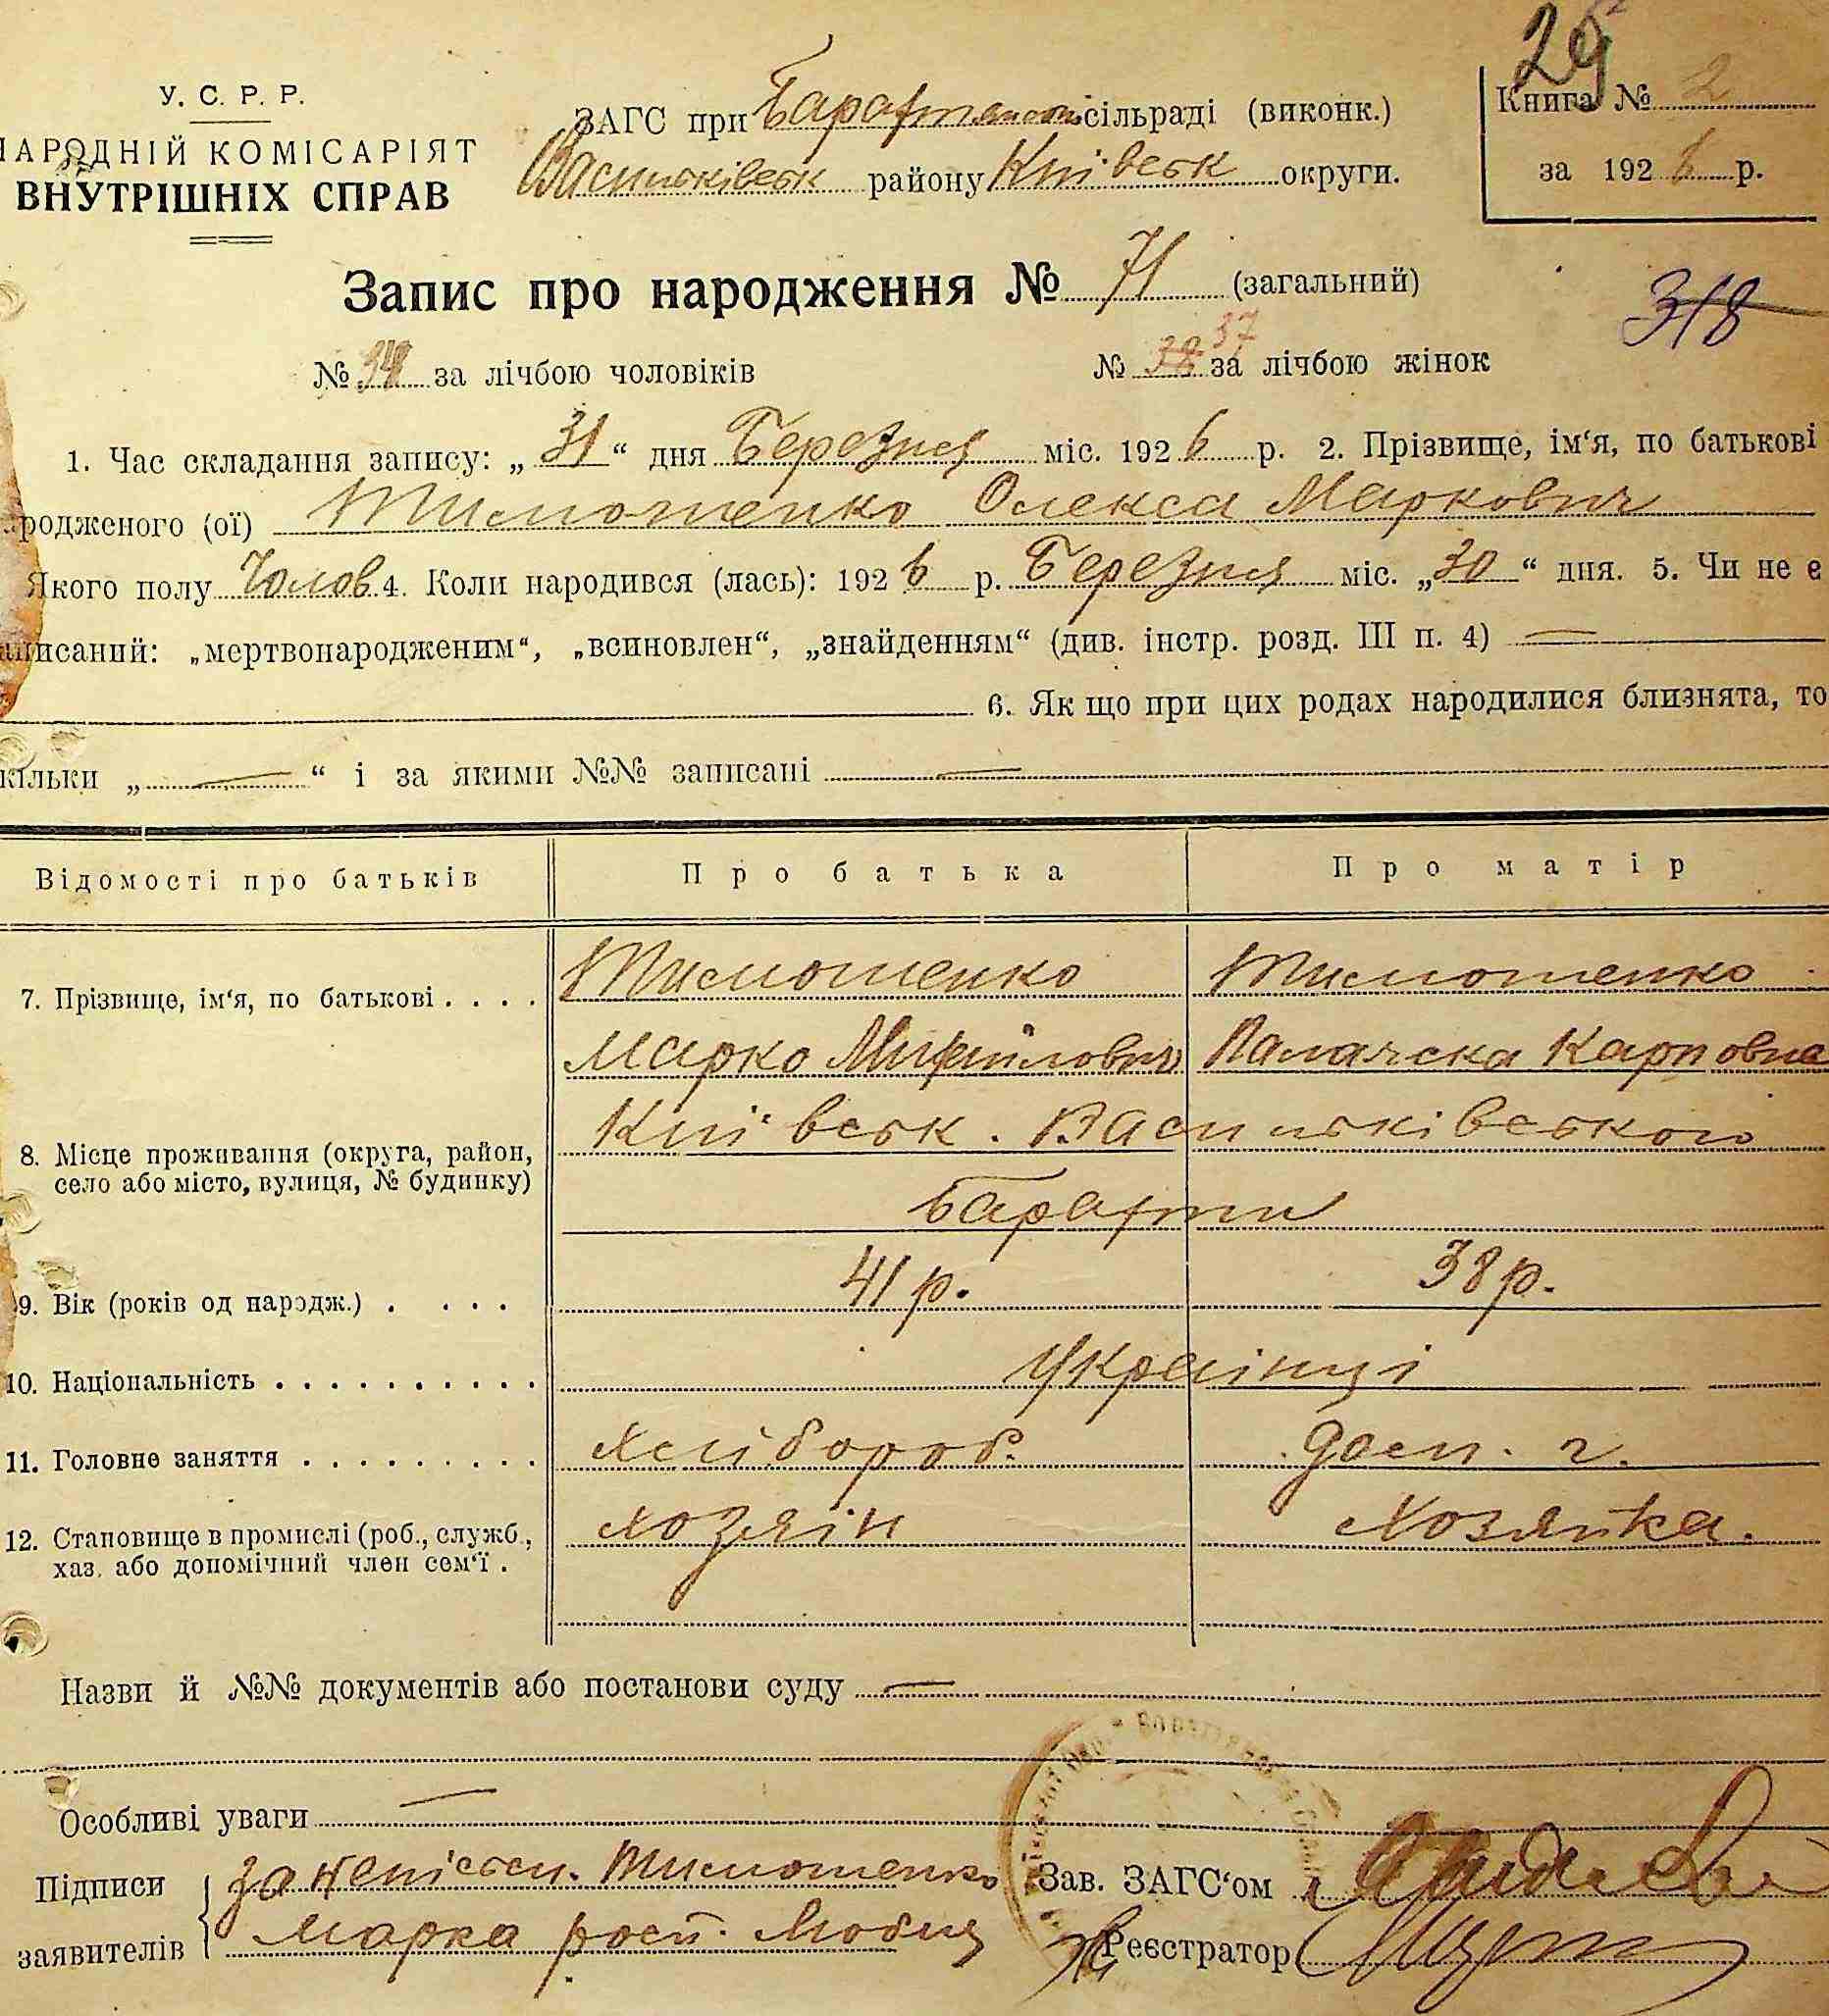 29
У. С. Р. Р.
НАРОДНІЙ КОМІСАРІЯТ
ВНУТРІШНІХ СПРАВ
ЗАГС при Барахтянськ сільраді (виконк.)
Васильківськ району Київськ округи.
Книга № 2
за 1926 р.
Запис про народження № 71 (загальний)
318
№ 34 за лічбою чоловіків № 38 37 за лічбою жінок
1. Час складання запису: „31“ дня Березня міс. 1926 р. 2. Прізвище, ім‘я, по батькові
родженого (ої) Тимошенко Олекса Маркович
Якого полу Чолов 4. Коли народився (лась): 1926 р. Березня міс. „30“ дня. 5. Чи не є
писаний: „мертвонародженим“, „всиновлен“, „знайденням“ (див. інстр. розд. III п. 4) —
6. Як що при цих родах народилися близнята, то
кільки „—“ і за якими №№ записані —
Відомості про батьків Про батька Про матір
7. Прізвище, ім‘я, по батькові . . . . Тимошенко Тимошенко
Марко Михайлович Палажка Карповна
8. Місце проживання (округа, район, село або місто, вулиця, № будинку) Київськ. Васильківського
Барахти
9. Вік (років од народж.) . . . . 41 р. 38 р.
10. Національність . . . . . . . . . . Українці
11. Головне заняття . . . . . . . . . . Хлібороб. досп. г.
12. Становище в промислі (роб., служб., хаз. або допомічний член сем‘ї . хозяїн Хозяйка.
Назви й №№ документів або постанови суду —
Особливі уваги —
Підписи за неписьм. Тимошенко Зав. ЗАГС‘ом
заявителів Марка росп. Реєстратор